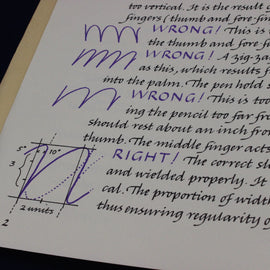 too vertical. It is the result of
fingers (thumb and fore-fin
WRONG! This is
the thumb and fore-fi
WRONG! A zig-za
as this, which results f
into the palm. The pen hold s
WRONG! This is too
ing the pencil too far fro
should rest about an inch from
thumb. The middle finger acts
RIGHT! The correct sl
and wielded properly. It
cal. The proportion of width
thus ensuring regularity o
5° 10°
3
2 units
2